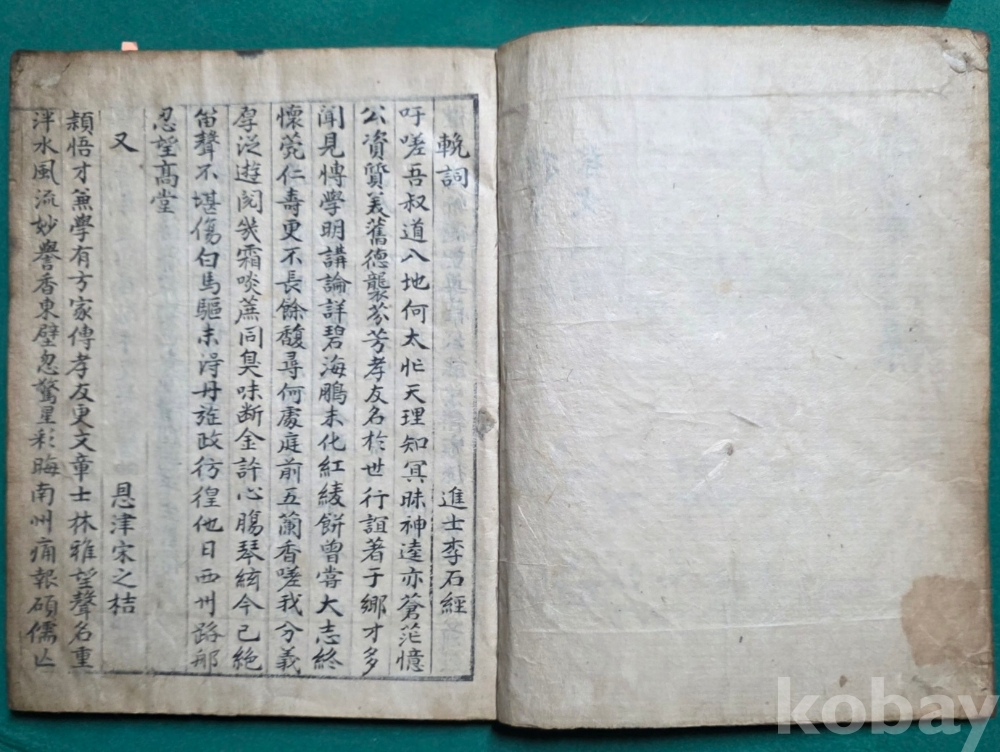 輓詞 進士李石經
吁嗟吾叔道八地何太忙天理知冥昧神逵亦蒼茫憶
公資質美舊德襲芬芳孝友名於世行誼著于鄉才多
聞見愽學明講論詳碧海鵬未化紅綾餅曾嘗大志終
懷 仁壽更不長餘馥尋何處庭前五蘭香嗟我分義
厚泛遊閱幾霜啖蔗同臭味断金許心膓琴絃今已絶
笛聲不堪傷白馬驅未淂丹旌政彷徨他日西州路那
忍望高堂
又 恩津宋之桔
穎悟才兼學有方家傳孝友更文章士林雅望聲名重
泮水風流妙譽香東壁忽驚星彩晦南州痛報碩儒亡
kobay